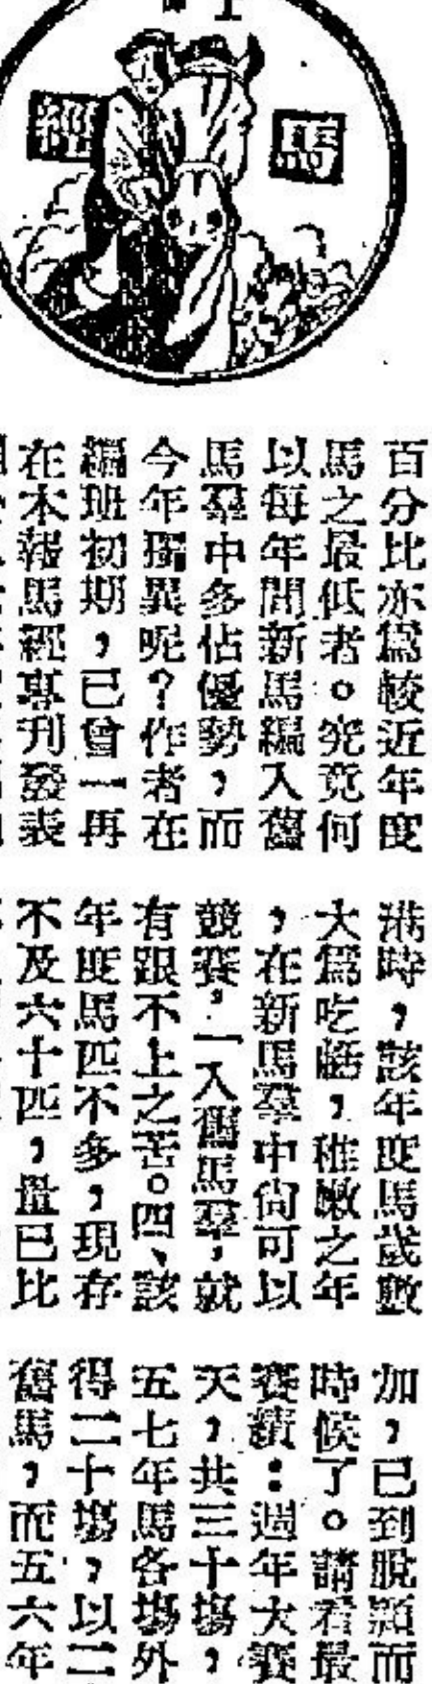 馬
經
百分比亦爲較近年度
馬之最低者。究竟何
以每年間新馬編入舊
馬羣中多佔優勢，而
今年獨異呢？作者在
編班初期，已曾一再
在本報馬經專刊發表
滿時，該年度馬歲數
大爲吃虧，稚嫩之年
，在新馬羣中尙可以
競賽，一入舊馬羣，就
有跟不上之苦。四、該
年度馬匹不多，現存
不及六十匹，量已比
加，已到脫穎而
時候了。請看最
賽績：週年大賽
天，共三十塲，
五七年馬各塲外
得二十塲，以二
舊馬，而五六年